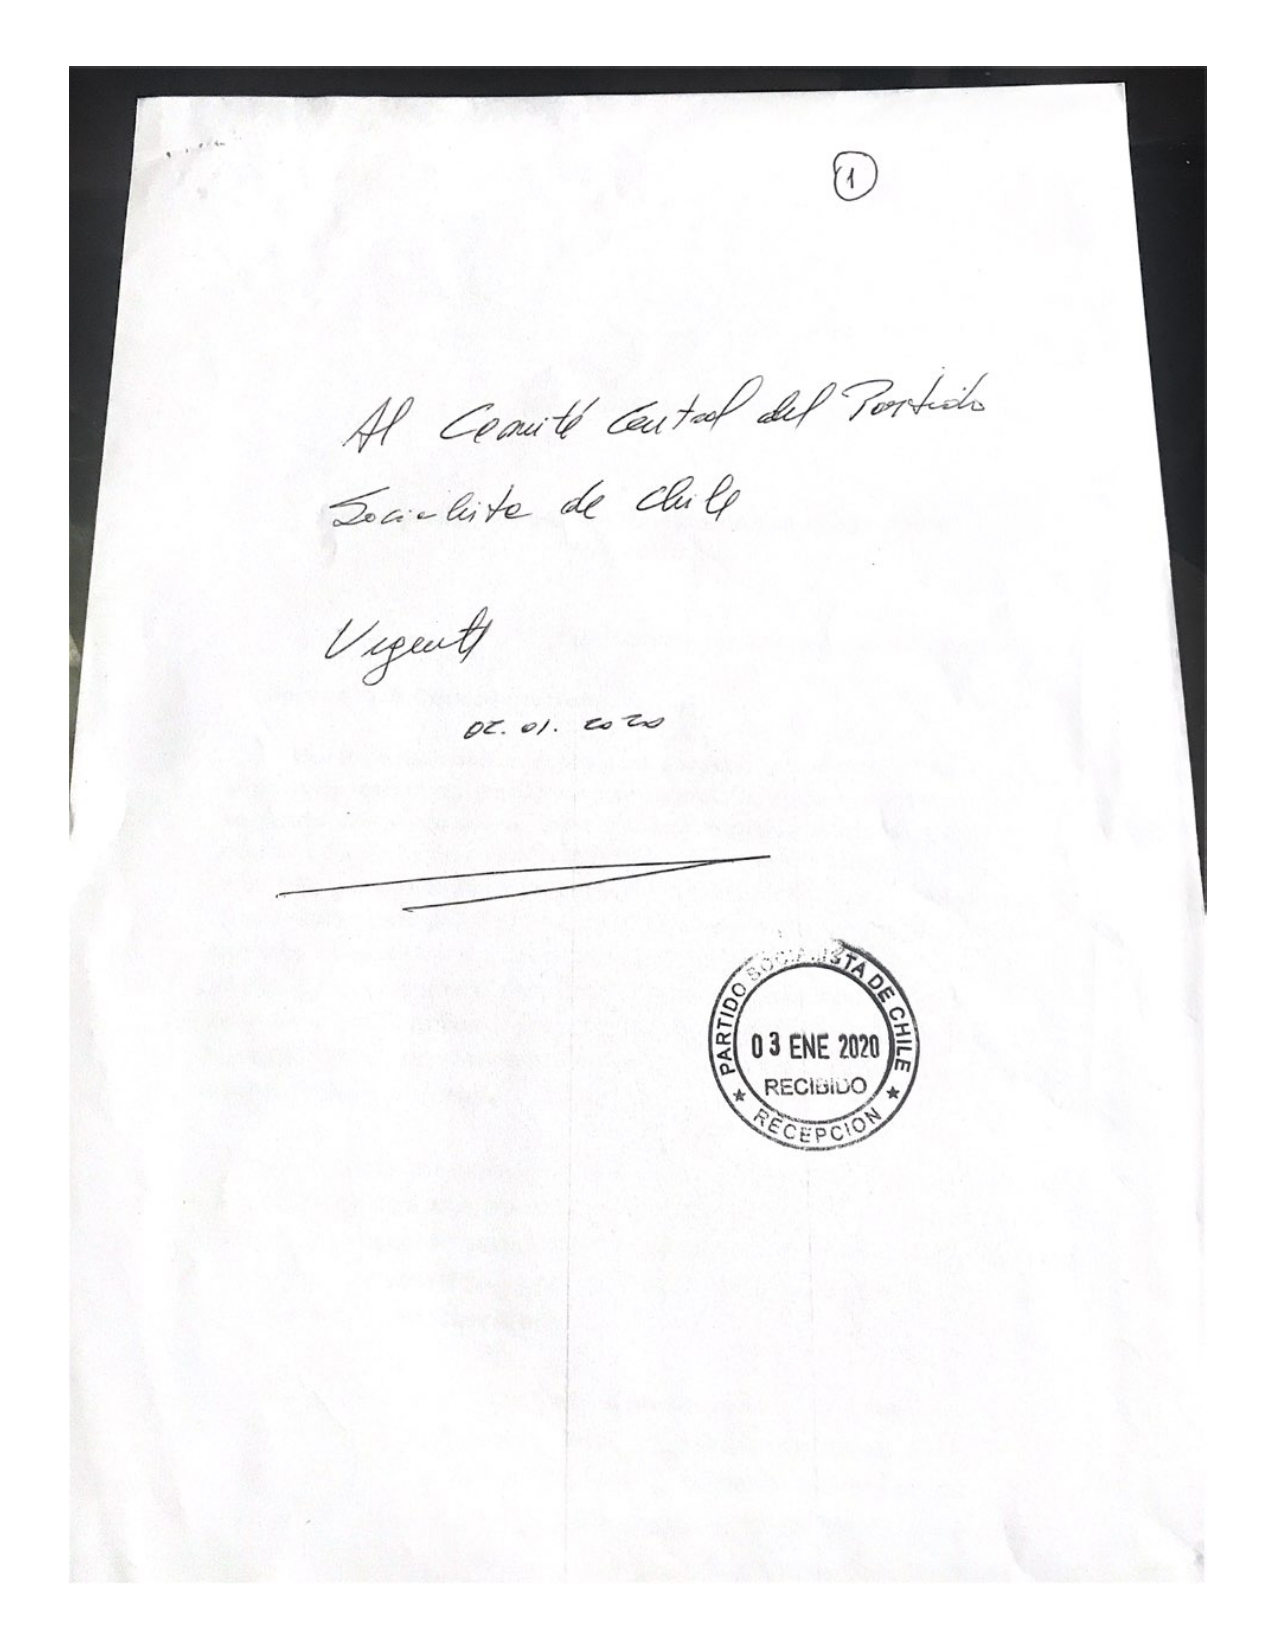 1
Al Comité Central del Partido
Socialista de Chile
Urgente
02.01.2020
PARTIDO SOCIALISTA DE CHILE
03 ENE 2020
RECIBIDO
RECEPCION